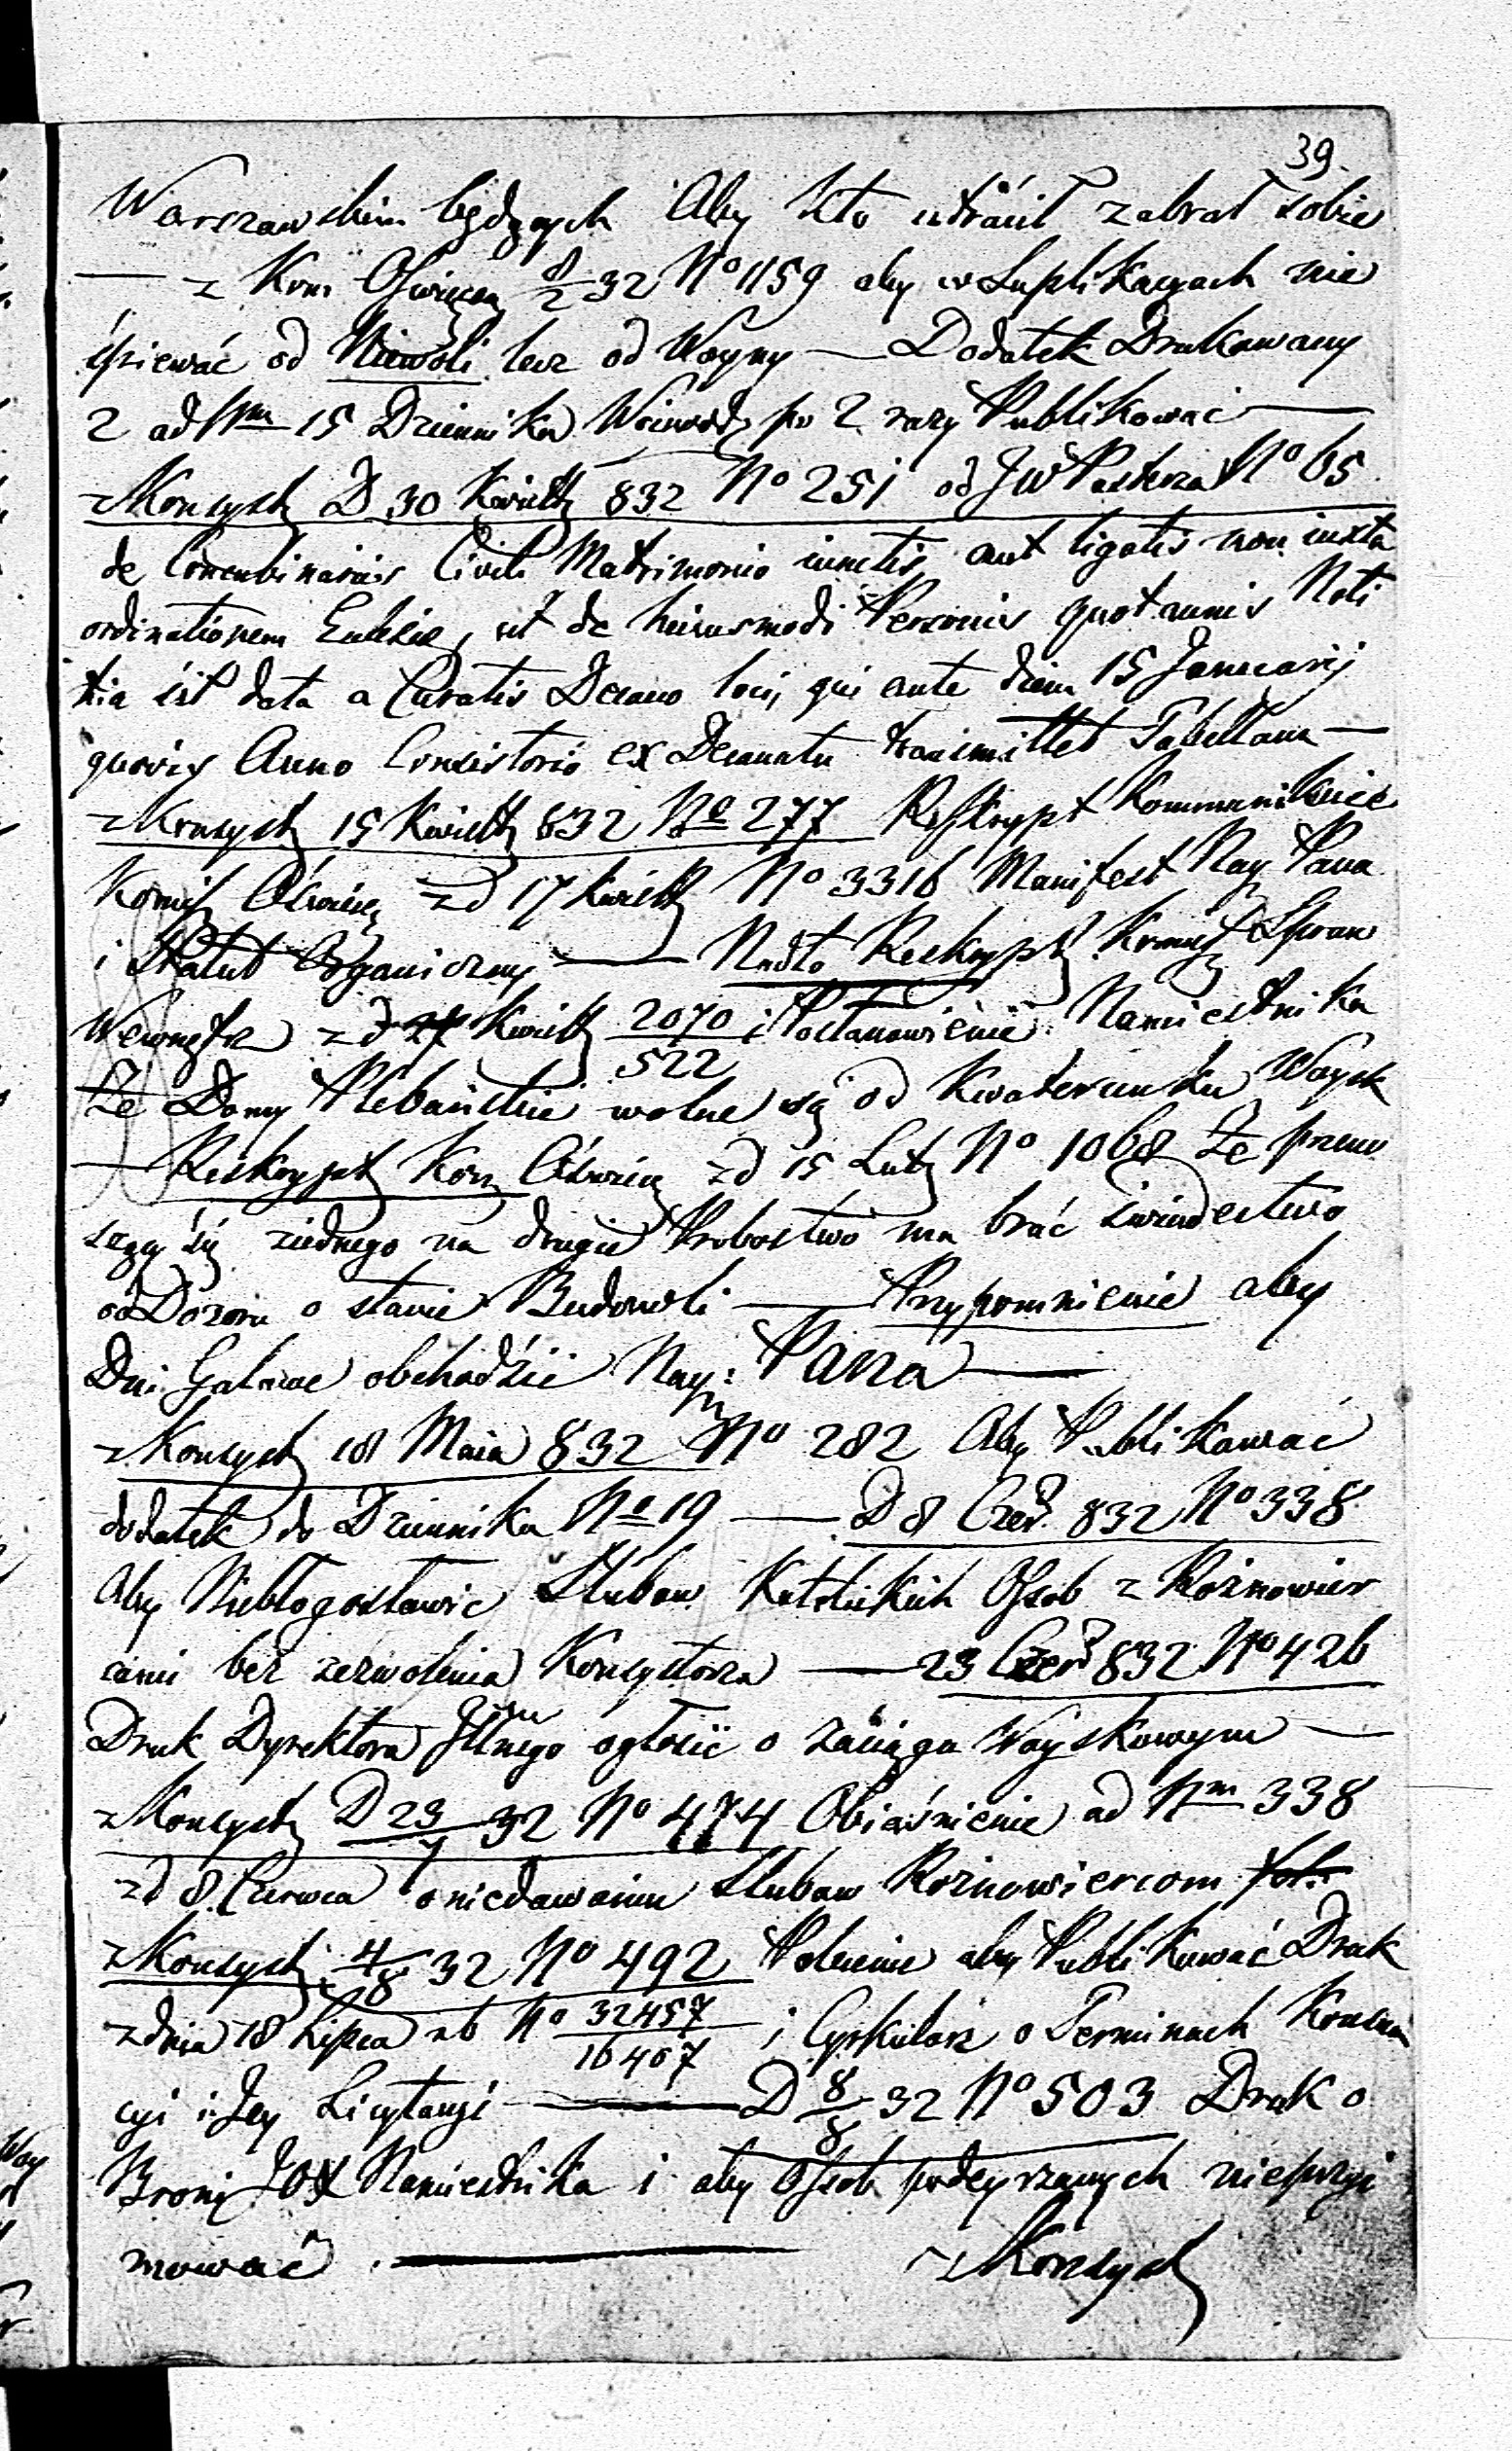 39.
Warszawskim będących Aby kto utracił zabrał sobie
— z Kom Oświecen 8/2 32 No 1159 aby w Suplikacyach nie
śpiewać od Niewoli lecz od Woyny — Dodatek Drukowany
2 ad Nm 15 Dziennika Woiewodz po 2 razy Publikować —
z Konsyst D 30 Kwiet 832 No 251 od JW Pasterza No 65
de Concubinariis Civili Matrimonio iunctis aut ligatis non iuxta
ordinationem Eulesie, ut de huiusmodi Personis quotannis Noti
tia sit data a Curatis Decano loci, qui ante diem 15 Januarij
quovis Anno Consistorio ex Decanatu transmittet Tabellam —
z Konsyst 15 Kwiet 832 No 277 Reskrypt Kommunikuie
Komiss Oświece z d 17 Kwiet No 3316 Manifest Nay Pana
i Statut Organiczny — Nadto Reskrypt Komiss Spraw
Wewnętr z d 27 Kwiet 2070/522 i Postanowienie Namiestnika
że Domy Plebańskie wolne są od Kwaterunku Woysk
— Reskrypt Kom Oświece z d 15 Lut No 1068 że przeno
szący się ziednego na drugie Probostwo ma brać świadectwo
od Dozoru o stanie Budowli — Przypomnienie aby
Dni Galowe obchodzić Nay: Pana —
z Konsyst 18 Maia 832 No 282 Aby Publikować
dodatek do Dziennika No 19 — D 8 Czer 832 No 338
Aby Niebłogosławic Slubow Katolickich Osob z Rożnowier
cami bez zezwolenia Konsystorza — 23 Czer 832 No 426
Druk Dyrektora Jlnego ogłosić o zaciągu Woyskowym —
z Konsyst D 23/7 32 No 474 Obiaśnienie ad Nm 338
z d 8 Czerwca o niedawaniu Slubow Rożnowiercom
z Konsyst 4/8 32 No 492 Polecenie aby Publikować Druk
z dnia 18 Lipca rb No 32457/16407 i Cyrkularz o Terminach
cyi i Jey Licytacyi — D 8/8 32 No 503 Druk o
Broni JOX Namiestnika i aby Osob podeyrzanych nieprzyi
mować — z Konsyst